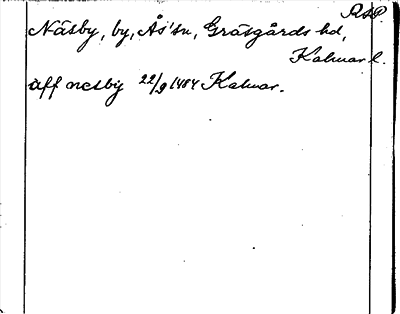 RAP.
Näsby, by, Ås sn, Gräsgårds hd,
Kalmar l.
aff nesby 22/9 1484 Kalmar.